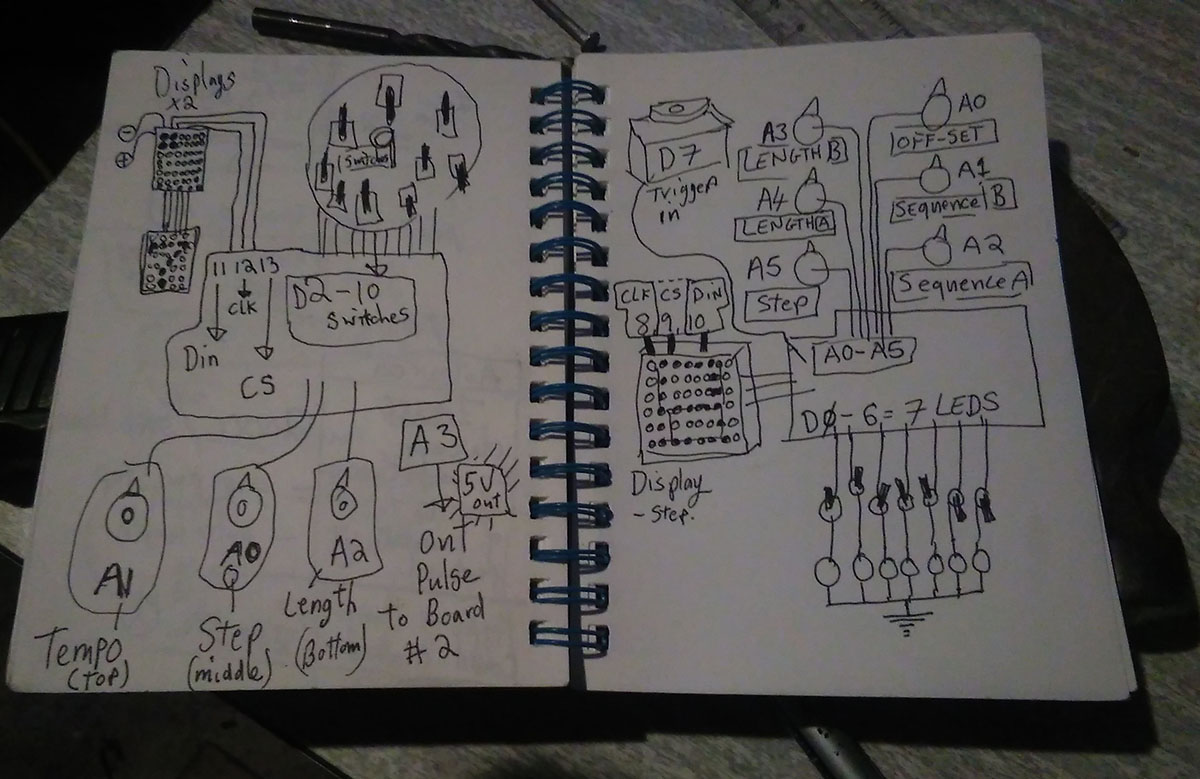 Displays
x2
⊖
⊕
(Switches)
11 12 13
CLK
Din
CS
D2-10
Switches
A1
Tempo
(top)
A0
Step
(middle)
A2
Length
(Bottom)
A3
5V
out
Out
Pulse
to Board
#2
D7
Trigger
in
A3
LENGTH B
A4
LENGTH A
A5
Step
A0
OFF-SET
A1
Sequence B
A2
Sequence A
CLK CS Din
8 9, 10
A0-A5
DØ-6=7 LEDS
Display
-Step.